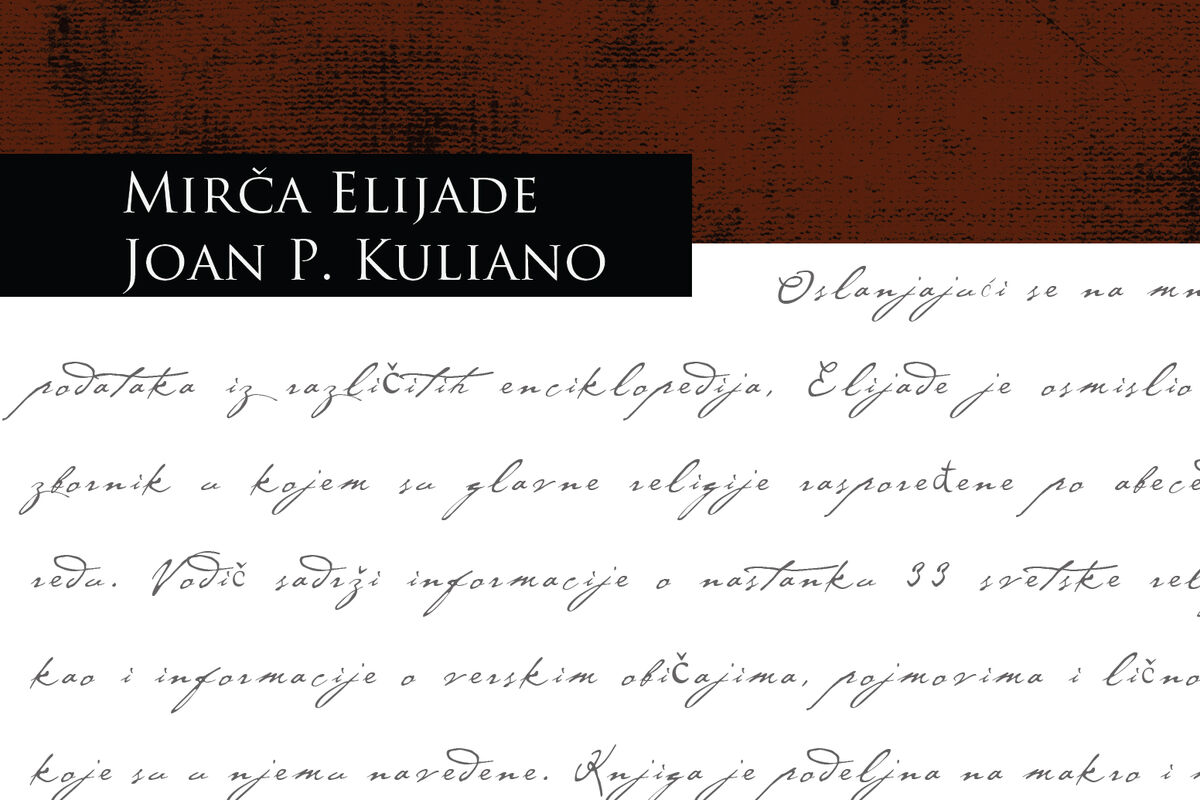 MIRČA ELIJADE
JOAN P. KULIANO
Oslanjajući se na mn
podataka iz različitih enciklopedija, Elijade je osmislio
zbornik u kojem su glavne religije raspoređene po abece
redu. Vodič sadrži informacije o nastanku 33 svetske rel
kao i informacije o verskim običajima, pojmovima i lično
koje su u njemu navedene. Knjiga je podeljna na makro i